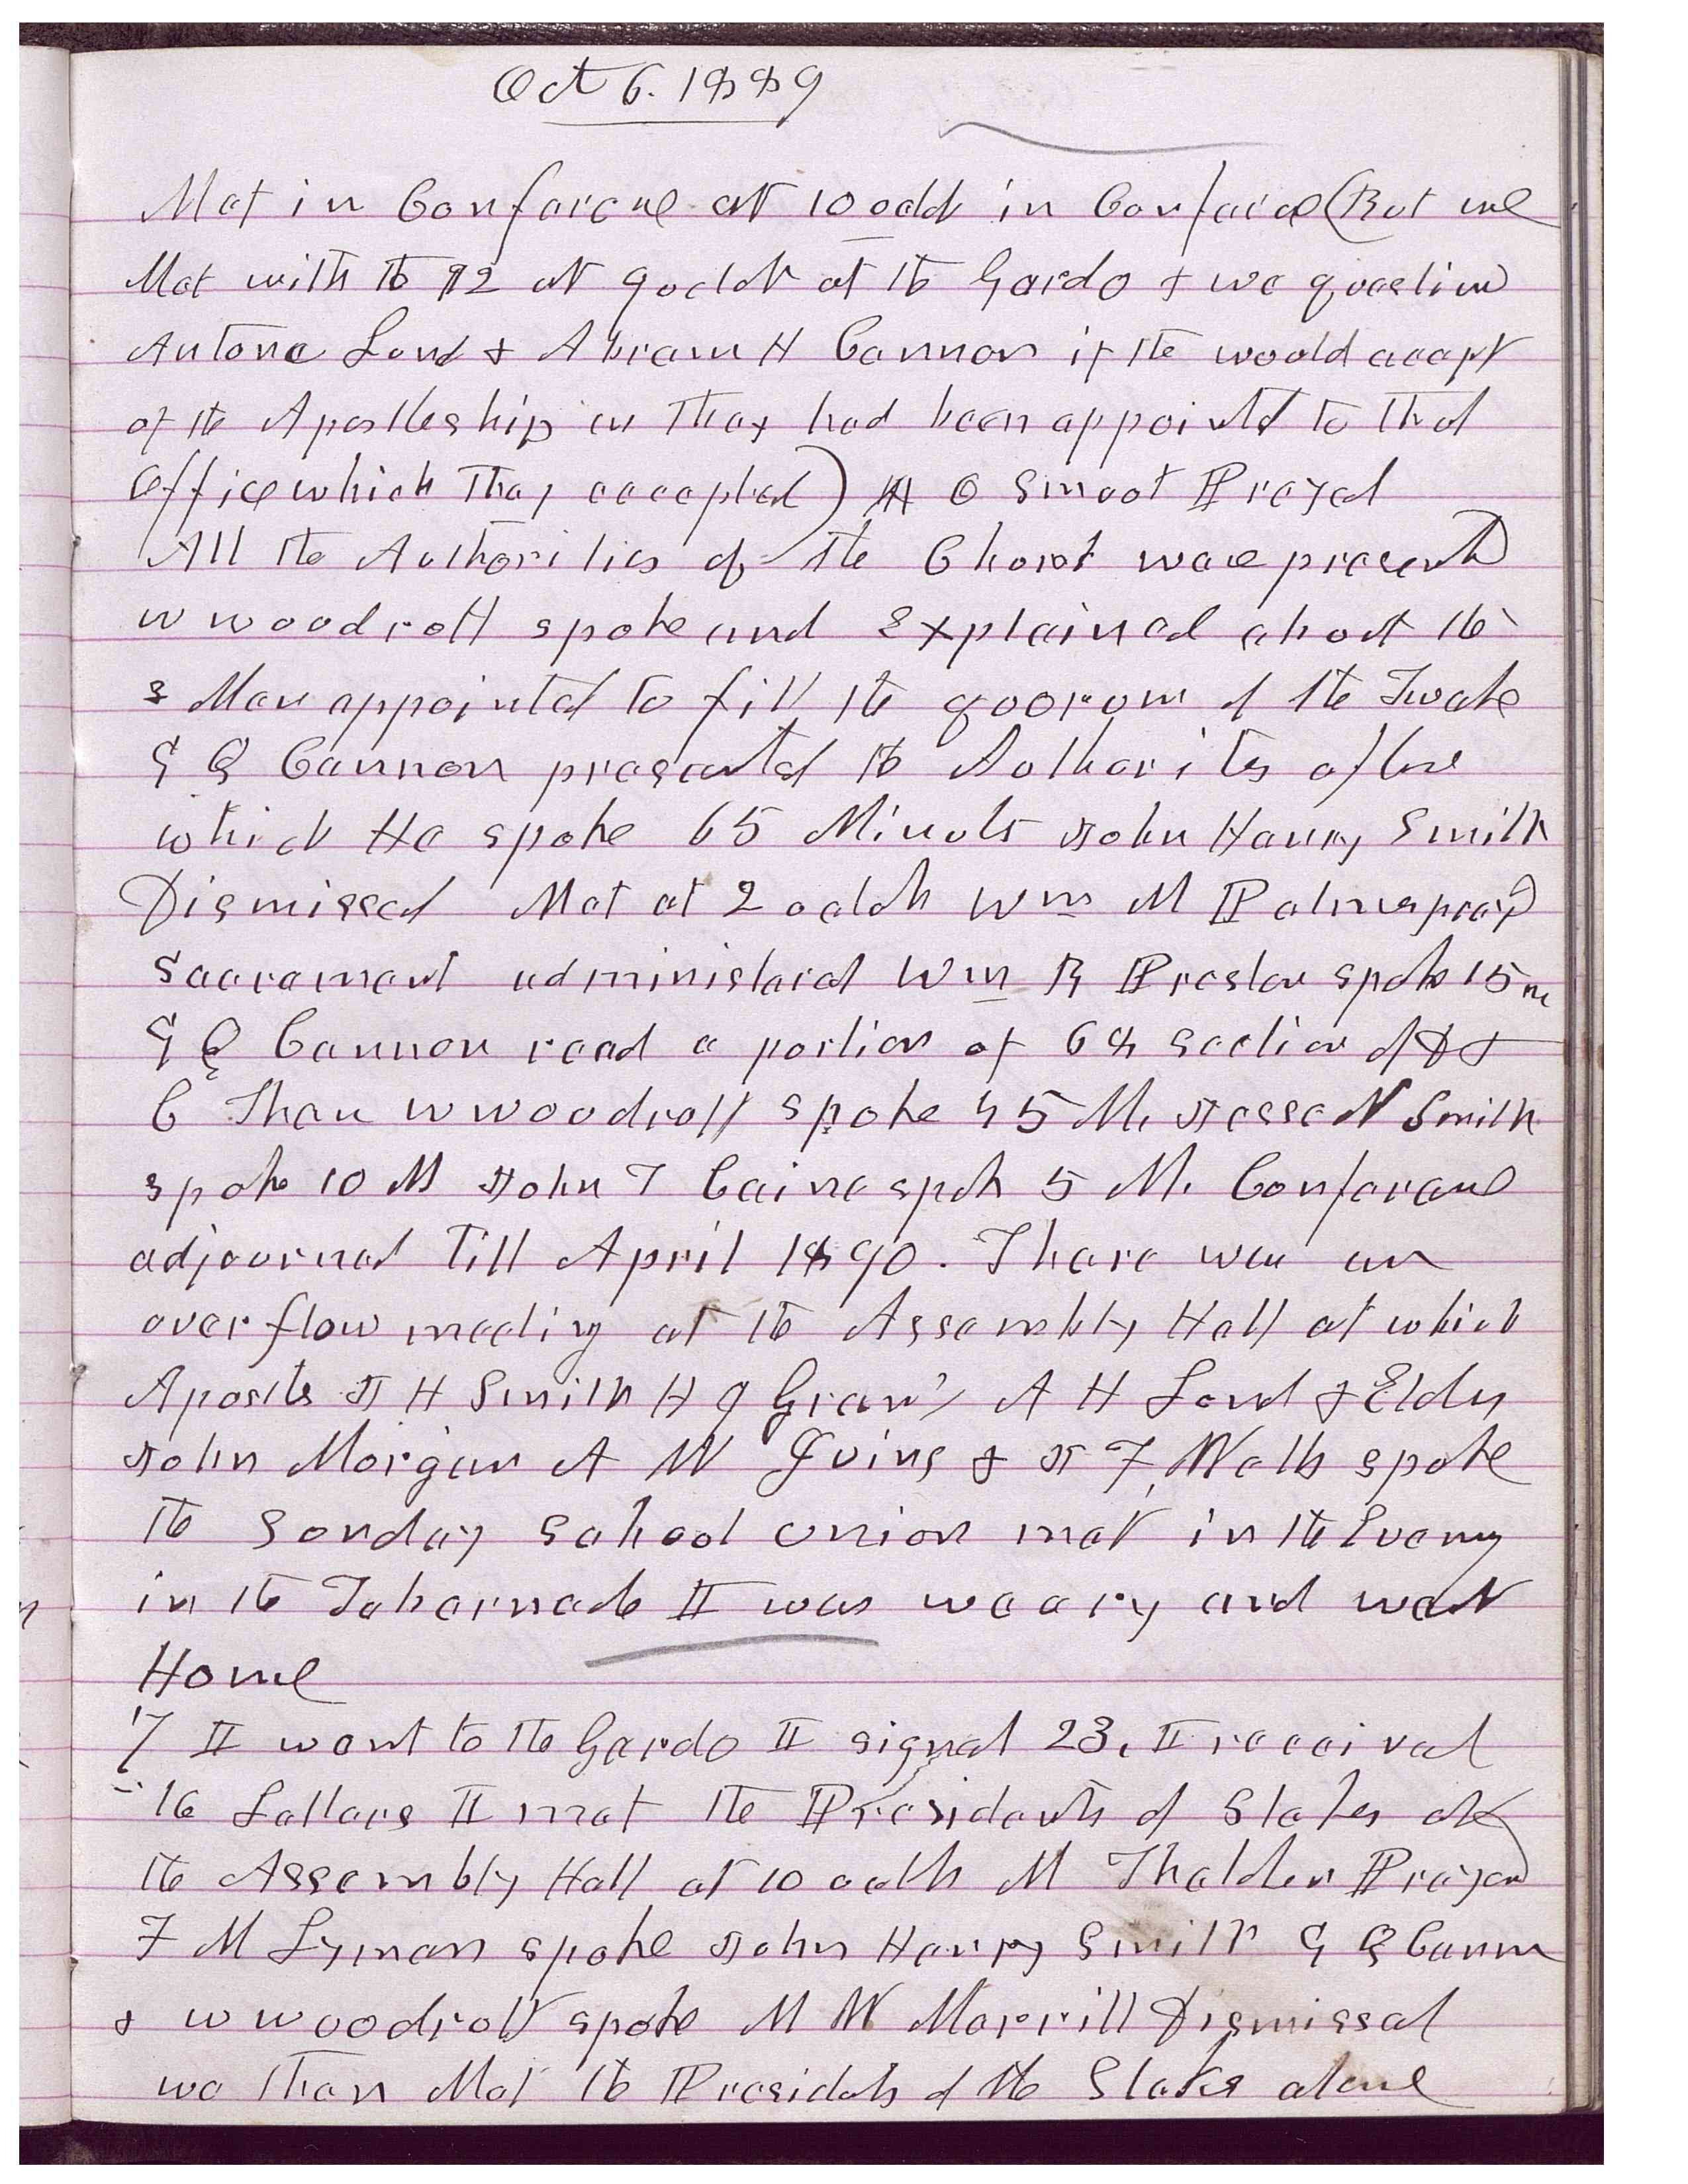 Oct 6. 1889
Met in Conferene at 10 oclok in Conferece (But we
Met with the 12 at 9 oclok at the Gardo & we question
Antone Lund & Abram H Cannon if the would accept
of the Apostleship as they had been appointd to that
Office which They accepted) A O Smoot Prayed
All the Authorities of the Church ware present
W Woodruff spoke and Explained about the
3 Men appointed to fill the quorum of the Twelve
G Q Cannon presented the Authorites after
which He spoke 65 Minuts John Henry Smith
Dismissed Met at 2 oclok Wm M Palmer prayed
Sacrament administered Wm B Preston spoke 15 m
G Q Cannon read a portion of 68 Section of D &
C Then W Woodruff spoke 45 M. Jesse N Smith
spoke 10 M John T Caine spok 5 M. Conferene
adjourned till April 1890. There was an
overflow meeting at the Assembly Hall at which
Apostls J H Smith H J Grant A H Lund & Elders
John Morgan A W Ivins & J F Wells spoke
the Sunday School Union met in the Evening
in the Tabernacle I was weary and went
Home
7 I went to the Gardo I signed 23, I received
16 Letters I met the Presidents of Stakes at
the Assembly Hall at 10 oclk M Thatcher Prayed
F M Lyman spoke John Henry Smith G Q Cannon
& W Woodruff spoke M W Merrill Dismissed
we then Met the Presidets of the Stakes alone